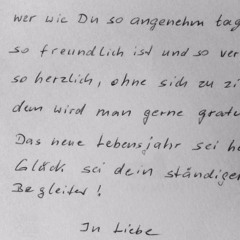 wer wie Du so angenehm tag
so freundlich ist und so ver
so herzlich, ohne sich zu zi
dem wird man gerne gratu
Das neue Lebensjahr sei he
Glück sei dein ständiger
Begleiter!
In Liebe